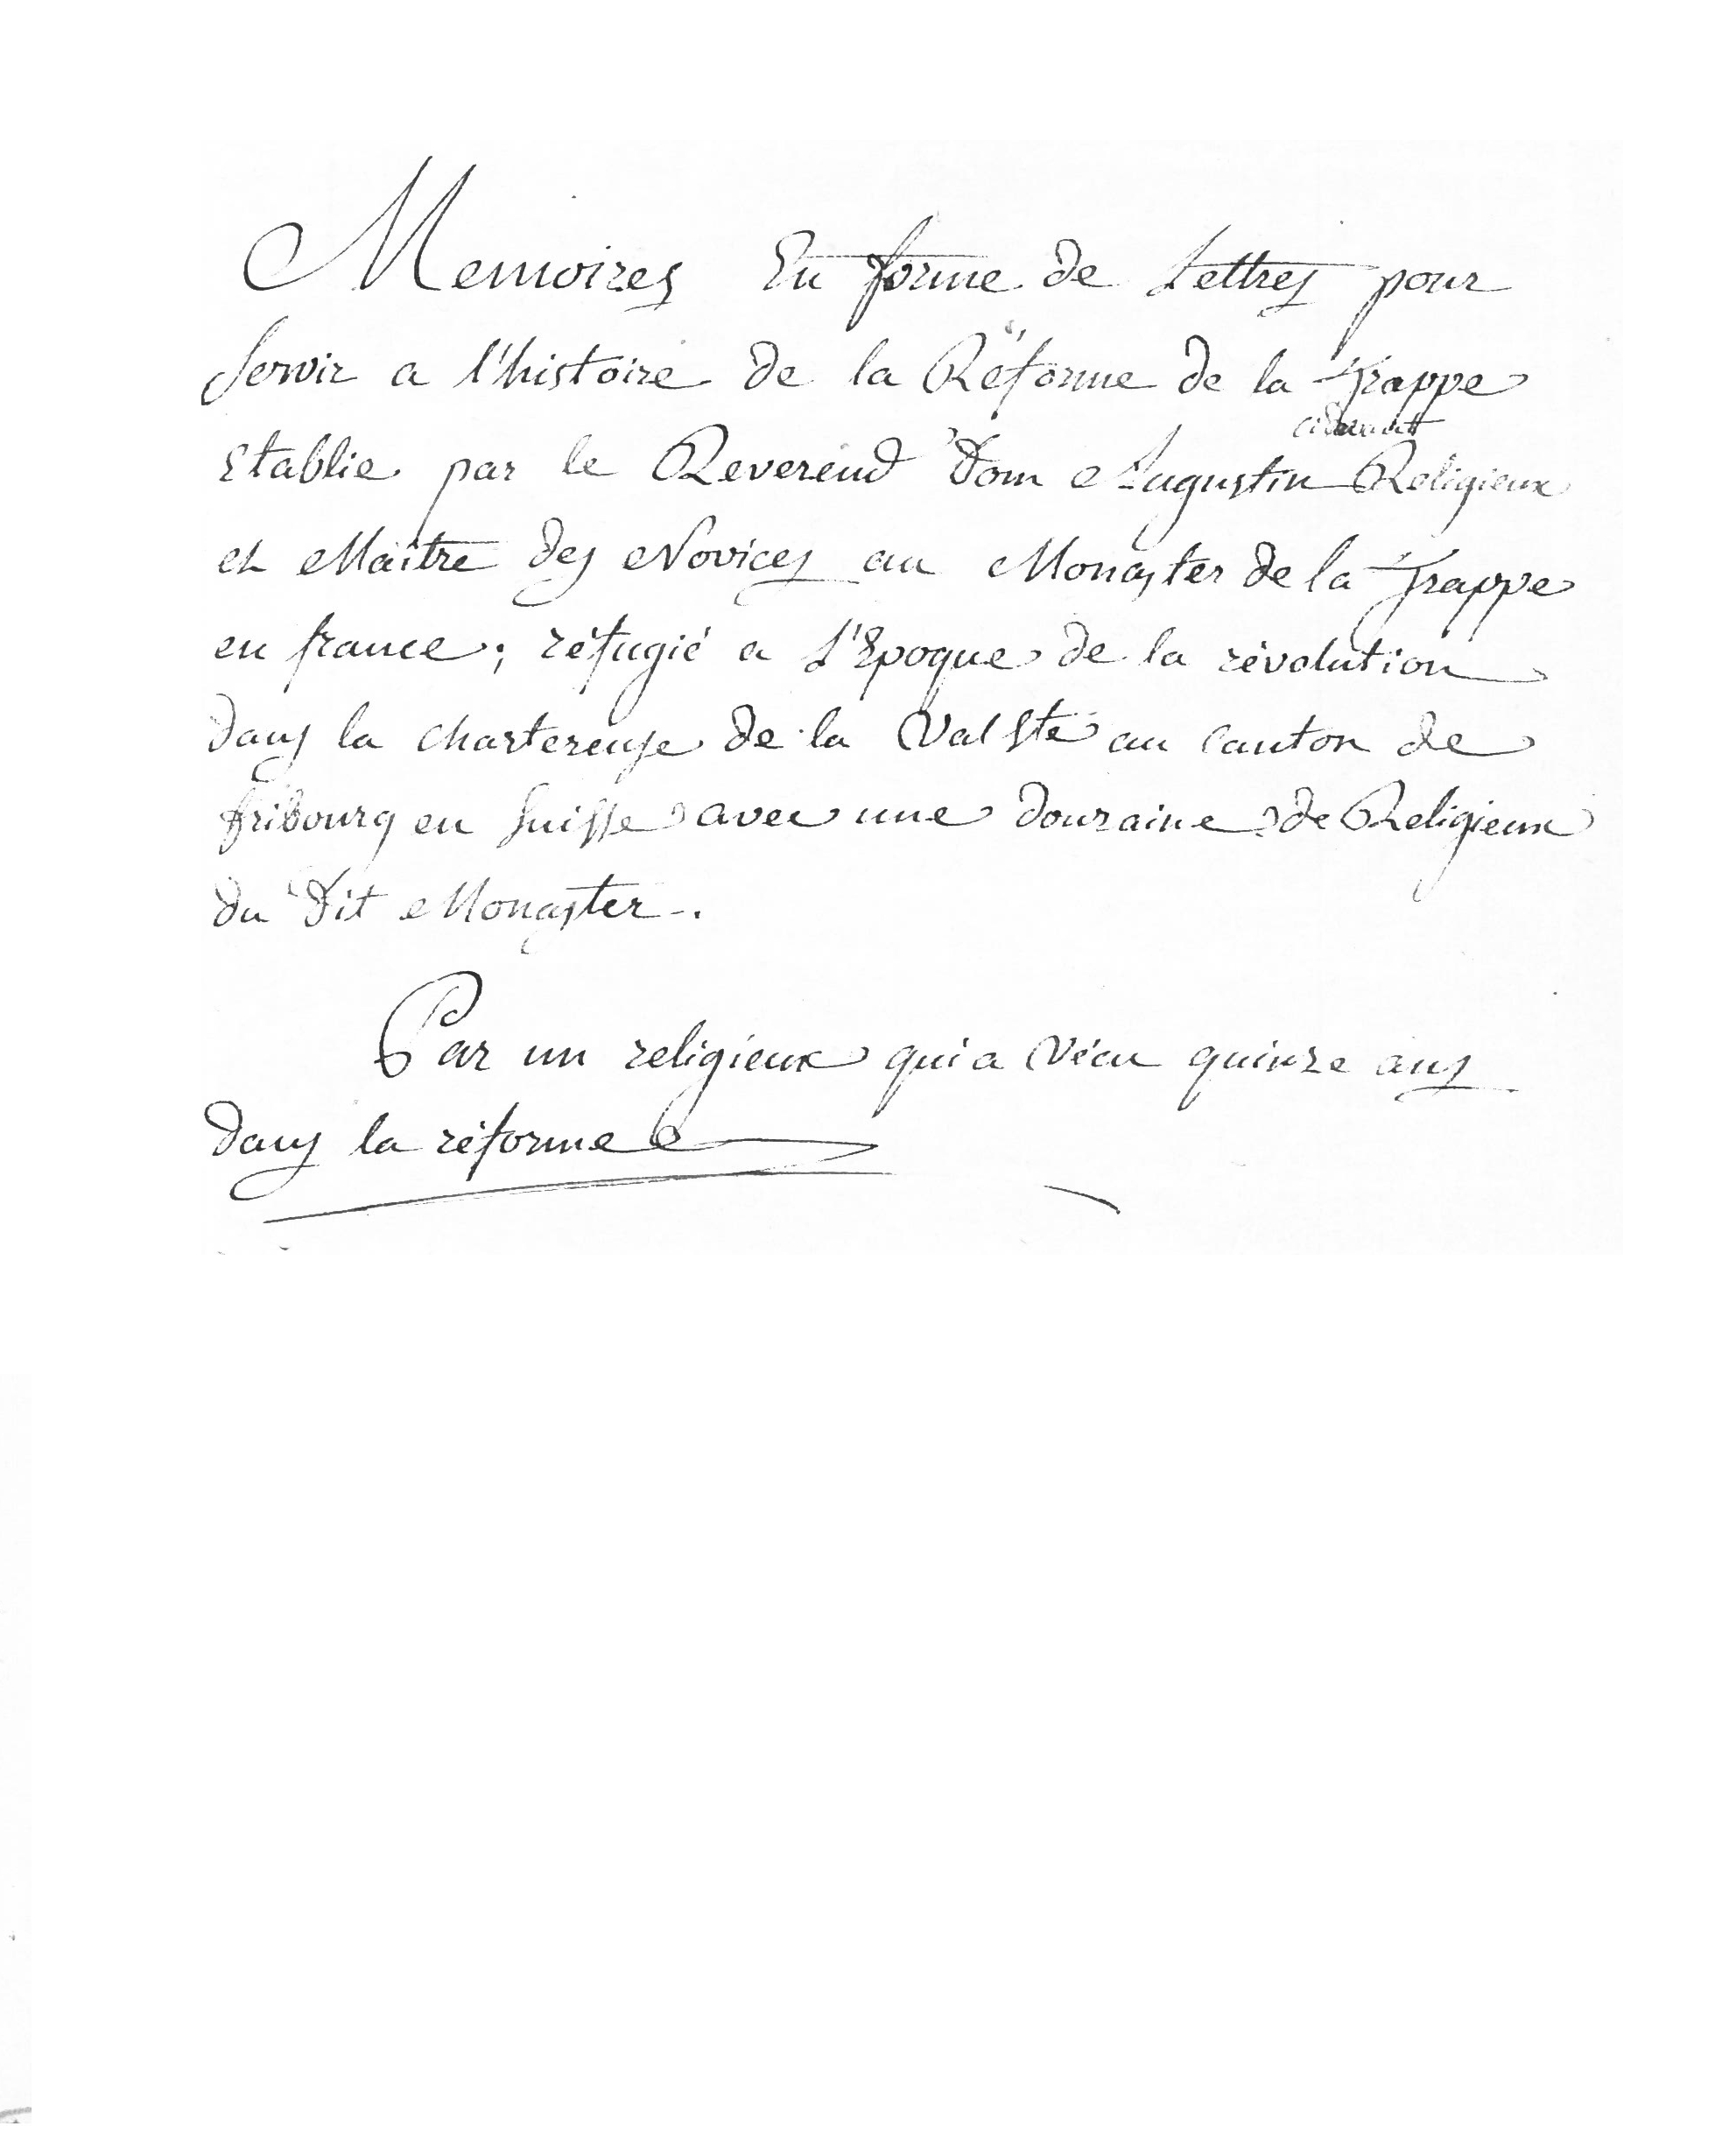 Memoires En forme de Lettres pour
servir a l'histoire de la Réforme de la Trappe
Etablie par le Reverend Dom Augustin cidevant Religieux
et Maître des Novices au Monaster de la Trappe
en france; réfugié a L'Epoque de la révolution
dans la chartereuse de la Val Ste au Canton de
fribourg en Suisse avec une douzaine de Religieux
du dit Monaster.
Par un religieux qui a vécu quinze ans
dans la réforme